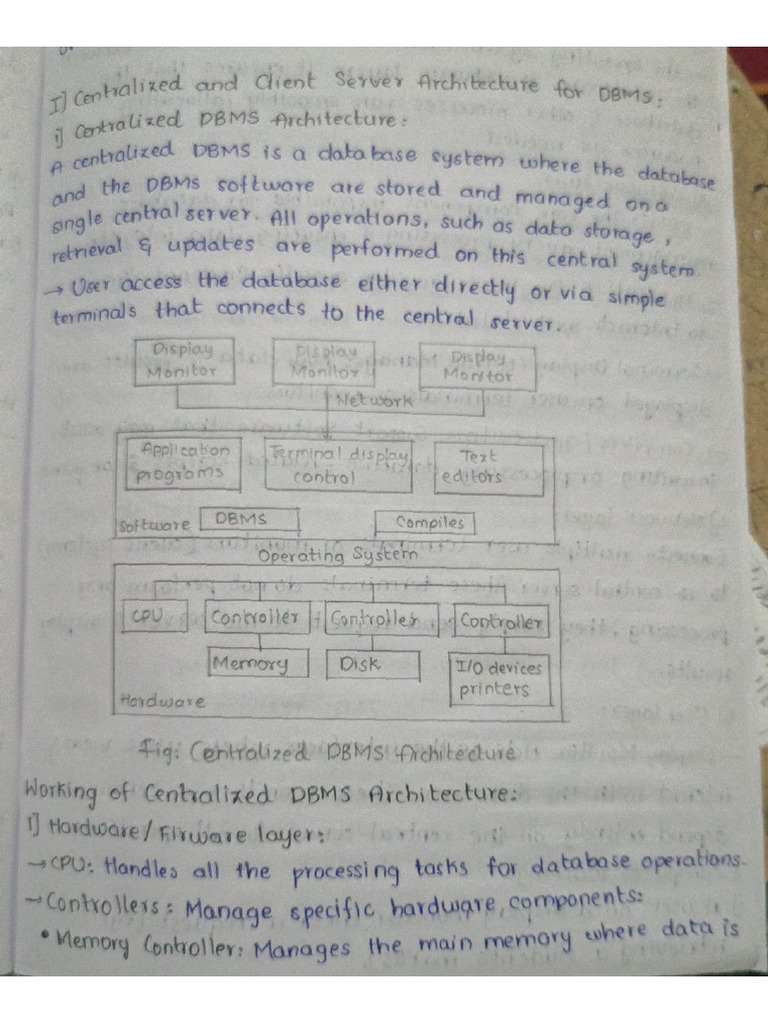 I] Centralized and Client Server Architecture for DBMS:
i) Centralized DBMS Architecture:
A centralized DBMS is a database system where the database
and the DBMS software are stored and managed on a
single central server. All operations, such as data storage,
retrieval & updates are performed on this central system
→ User access the database either directly or via simple
terminals that connects to the central server.
Display Monitor
Display Monitor
Display Monitor
Network
Application programs
Terminal display control
Text editors
Software
DBMS
Compiles
Operating System
CPU
Controller
Controller
Controller
Memory
Disk
I/O devices printers
Hardware
Fig: Centralized DBMS Architecture
Working of Centralized DBMS Architecture:
1] Hardware/Firware layer:
→ CPU: Handles all the processing tasks for database operations.
→ Controllers: Manage specific hardware components:
• Memory Controller: Manages the main memory where data is